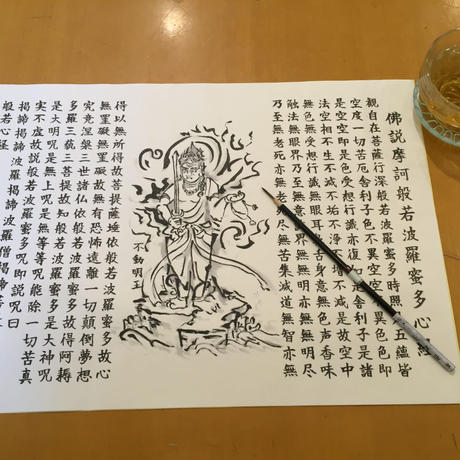 佛説摩訶般若波羅蜜多心経
観自在菩薩行深般若波羅蜜多時照見五蘊皆
空度一切苦厄舎利子色不異空空不異色色即
是空空即是色受想行識亦復如是舎利子是諸
法空相不生不滅不垢不浄不増不減是故空中
無色無受想行識無眼耳鼻舌身意無色声香味
触法無眼界乃至無意識界無無明亦無無明尽
乃至無老死亦無老死尽無苦集滅道無智亦無
不動明王
得以無所得故菩提薩埵依般若波羅蜜多故心
無罣礙無罣礙故無有恐怖遠離一切顛倒夢想
究竟涅槃三世諸仏依般若波羅蜜多故得阿耨
多羅三藐三菩提故知般若波羅蜜多是大神呪
是大明呪是無上呪是無等等呪能除一切苦真
実不虚故説般若波羅蜜多呪即説呪曰
揭諦揭諦波羅揭諦波羅僧揭諦菩
般若心経